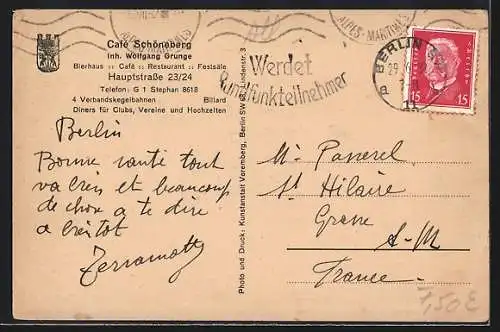 Café Schöneberg
Inh. Wolfgang Grunge
Bierhaus :: Café :: Restaurant :: Festsäle
Hauptstraße 23/24
Telefon: G 1 Stephan 8618
4 Verbandskegelbahnen Billard
Diners für Clubs, Vereine und Hochzeiten
Berlin
Bonne santé tout
va bien et beaucoup
de chose a te dire
a bientot
Photo und Druck: Kunstanstalt Voremberg, Berlin SW 68, Lindenstr. 3
ALPES-MARITIMES
Werdet
Rundfunkteilnehmer
BERLIN
29
15 15
Mr Passerel
St Hilaire
Grasse
A-M
France
1,50E